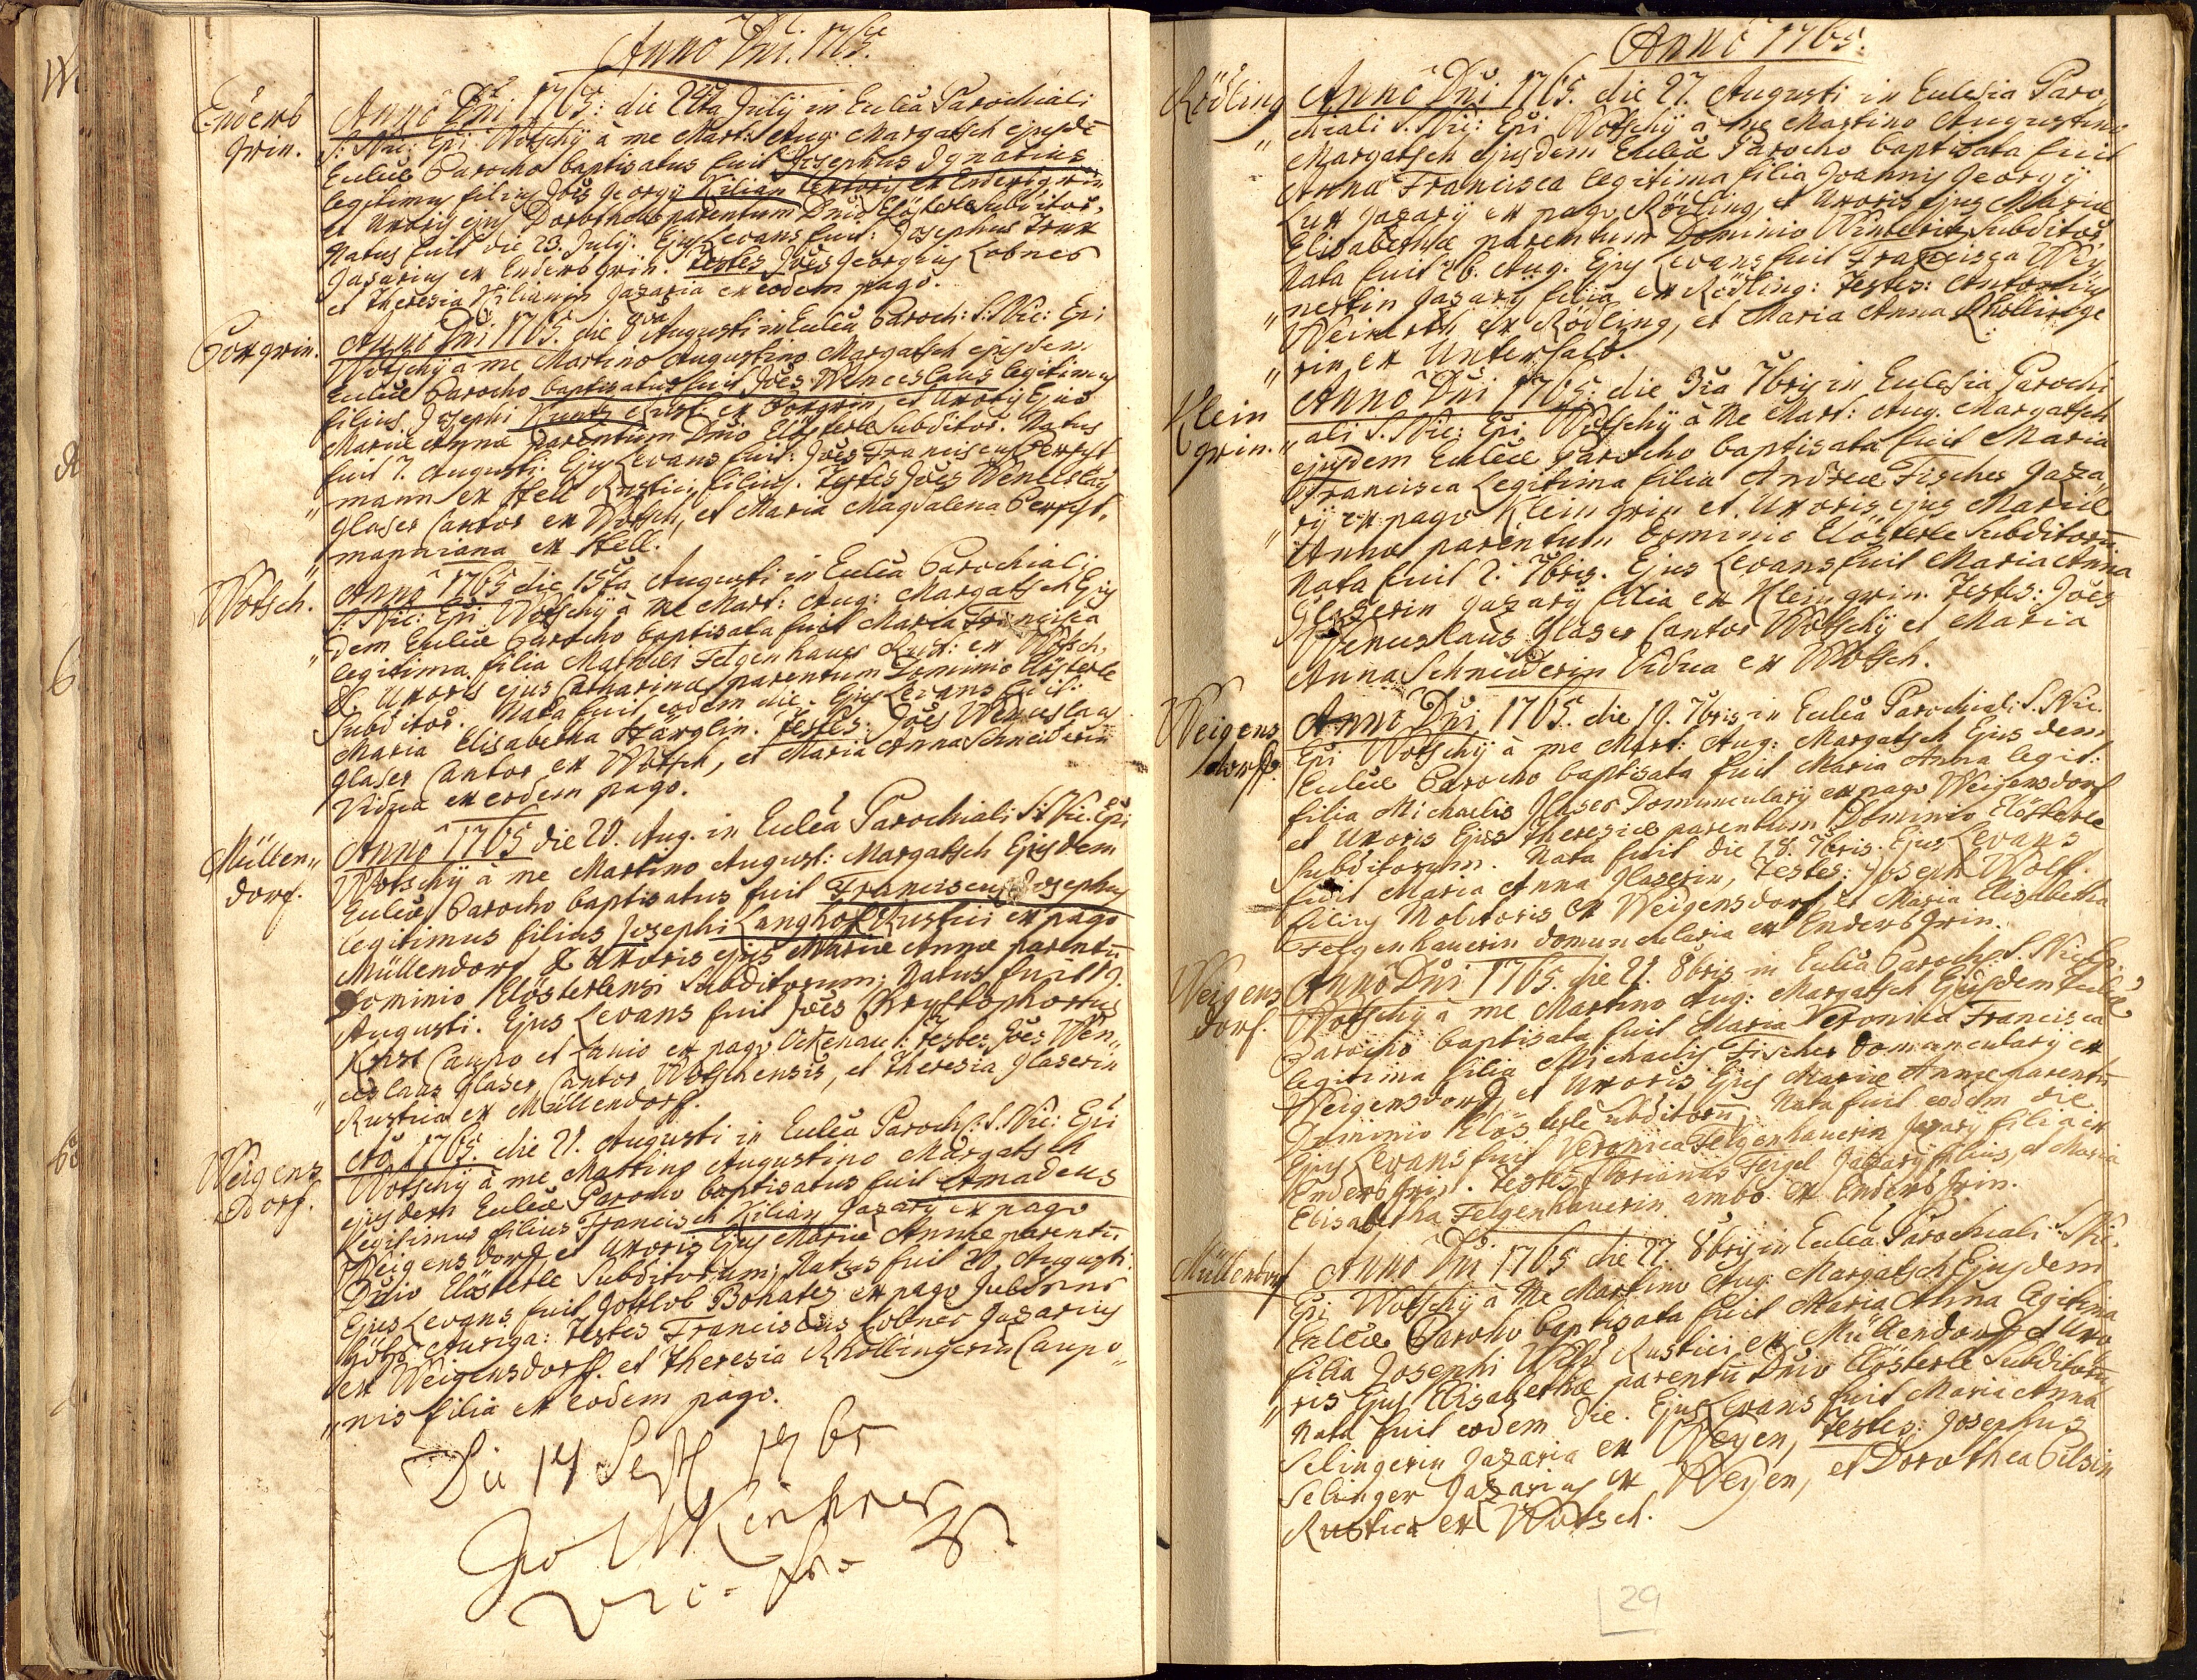 Anno Dni. 1765.
Enders
grin.
Anno Dni 1765: die 24ta July in Eccleâ Parochiali
S: Nic: Epi: Wotschÿ à me Mart: Aug: Margatsch ejusdē
Eccleæ Parocho baptisatus fuit Josephus Ignatius
legitimus filius Jois Georgij Kilian textoris ex Endersgrin
et Uxoris ejus Dorotheæ parentum Dnio Clösterle subditor.
Natus fuit die 23. July. Ejus Levans fuit: Josephus
Jazarius ex Endersgrin. Testes Joes Georgius Lobner
et Theresia Kilianin Jazaria ex eodem pago.
Boxgrin.
Anno Dni 1765. die 8va Augusti in Eccleâ Paroch: S: Nic: Epi
Wotschÿ à me Martino Augustino Margatsch ejusdem
Eccleæ Parocho baptisatus fuit Joes Wenceslaus legitimus
filius Josephi Kuntz Rust: ex Boxgrin, et Uxoris Ejus
Mariæ Annæ parentum Dnio Clösterle Subditor. Natus
fuit 7. Augusti. Ejus Levans fuit: Joes Franciscus
" mann ex Hell Rustici filius. Testes Joes Wenceslaus
Glaser Cantor ex Wotsch, et Maria Magdalena
" manniana ex Hell.
Wotsch.
Anno 1765 die 15ta Augusti in Eccleâ Parochiali
S: Nic: Epi Wotschÿ à me Mart: Aug: Margatsch Ejus
" dem Eccleæ Parocho baptisata fuit Maria Francisca
legitima filia Mathæi Felgenhauer Rust: ex Wotsch,
& Uxoris ejus Catharinæ parentum Dominio Clösterle
Subditor. Nata fuit eodem die. Ejus Levans fuit:
Maria Elisabetha Härglin. Testes: Joes Wenceslaus
Glaser Cantor ex Wotsch, et Maria Anna Schneiderin
Vidua ex eodem pago.
Müllen"
dorf.
Anno 1765 die 20. Aug. in Eccleâ Parochiali S: Nic: Epi
Wotschÿ à me Martino August: Margatsch Ejusdem
Eccleæ Parocho baptisatus fuit Franciscus Josephus
legitimus filius Josephi Langhof Rustici ex pago
Müllendorf & Uxoris ejus Mariæ Annæ parentū
Dominio Clösterlensi Subditorum; Natus fuit 19.
Augusti. Ejus Levans fuit Joes Chrystophorus
Ernst Caupo et Lanio ex pago Okenau: Testes Joes Wen"
" ceslaus Glaser Cantor Wotschensis, et Theresia Glaserin
Rustica ex Müllendorf.
Weigens
dorf.
Aō 1765. die 21. Augusti in Eccleâ Paroch: S. Nic: Epi
Wotschÿ à me Martino Augustino Margatsch
ejusdem Eccleæ Parocho baptisatus fuit Amadeus
Legitimus filius Francisci Kilian Jazarÿ ex pago
Weigensdorf et Uxoris Ejus Mariæ Annæ parentū
Dnio Clösterle Subditorum; Natus fuit 20. Augusti:
Ejus Levans fuit Gottlob Bonates ex pago
Auriga: Testes Franciscus Lobner Jazarius
ex Weigensdorf. et Theresia Khöllingerin Caupo"
" nis filia ex eodem pago.
Die 14 Sept 1765
Anno 1765.
Rödling
"
Anno Dni 1765. die 27. Augusti in Ecclesia Paro"
chiali S. Nic: Epi Wotschÿ à me Martino Augustino
Margatsch ejusdem Eccleæ Parocho baptisata fuit
Anna Francisca legitima filia Joannis Georgÿ
Lux Jazarÿ ex pago Rödling, et Uxoris Ejus Mariæ
Elisabethæ parentum Dominio Winteriz Subditor
Nata fuit 26. Aug. Ejus Levans fuit Francisca Wey"
" nertin Jazarÿ filia ex Rödling: Testes: Antonius
Weinerth ex Rödling, et Maria Anna Khöllinge
" rin ex Untersalz.
Klein
grin.
Anno Dni 1765: die 3ia 7bris in Ecclesia Parochi
" ali S. Nic: Epi Wotschÿ à Me Mart: Aug. Margatsch
ejusdem Eccleæ Parocho baptisata fuit Maria
Francisca Legitima filia Andreæ Fischer Jaza"
" rÿ ex pago Klein grin et Uxoris ejus Mariæ
Annæ parentum Dominio Clösterle Subditorū
Nata fuit 2. 7bris. Ejus Levans fuit Maria Anna
Glaserin Jazarÿ filia ex Kleingrin. Testes: Joes
Wenceslaus Glaser Cantor Wotschÿ et Maria
Anna Schneiderin Vidua ex Wotsch.
Weigens
dorf.
Anno Dni 1765. die 19. 7bris in Eccleâ Parochiali S. Nic.
Epi Wotschÿ à me Mart: Aug: Margatsch Ejusdem
Eccleæ Parocho baptisata fuit Maria Anna legit:
filia Michaelis Glaser Domuncularÿ ex pago Weigensdorf
et Uxoris Ejus Theresiæ parentum Dominio Clösterle
Subditorum. Nata fuit die 18. 7bris. Ejus Levans
fuit Maria Anna Glaserin, Testes: Joseph Wolf
filius Molitoris ex Weigensdorf, et Maria Elisabetha
Felgenhauerin domuncularia ex Endersgrin.
Weigens
dorf.
Anno Dni 1765. die 21. 8bris in Eccleâ Paroch: S. Nic: Epi
Wotschÿ à me Martino Aug: Margatsch Ejusdem Eccleæ
Parocho baptisata fuit Maria Veronica Francisca
legitima filia Michaelis Fischer Domuncularÿ ex
Weigensdorf, et Uxoris Ejus Mariæ Annæ parentū
Dominio Clösterle subditorū. Nata fuit eodem die
Ejus Levans fuit Veronica Felgenhauerin Jazarÿ filia ex
Endersgrin. Testes Florianus Feigel Jazarÿ filius, et Maria
Elisabetha Felgenhauerin ambo ex Endersgrin.
Müllendorf
Anno Dni 1765 die 27. 8bris in Eccleâ Parochiali S: Nic.
Epi Wotschÿ à Me Martino Aug: Margatsch Ejusdem
Eccleæ Parocho baptisata fuit Maria Anna legitima
filia Josephi Wild Rustici ex Müllendorf et Uxo
" ris Ejus Elisabethæ parentū Dnio Clösterle Subditorū
Nata fuit eodem die. Ejus Levans fuit Maria Anna
Selingerin Jazaria ex Weyen, Testes: Josephus
Selinger Jazarius ex Weyen, et Dorothea Pilsin
Rustica ex Wotsch.
29